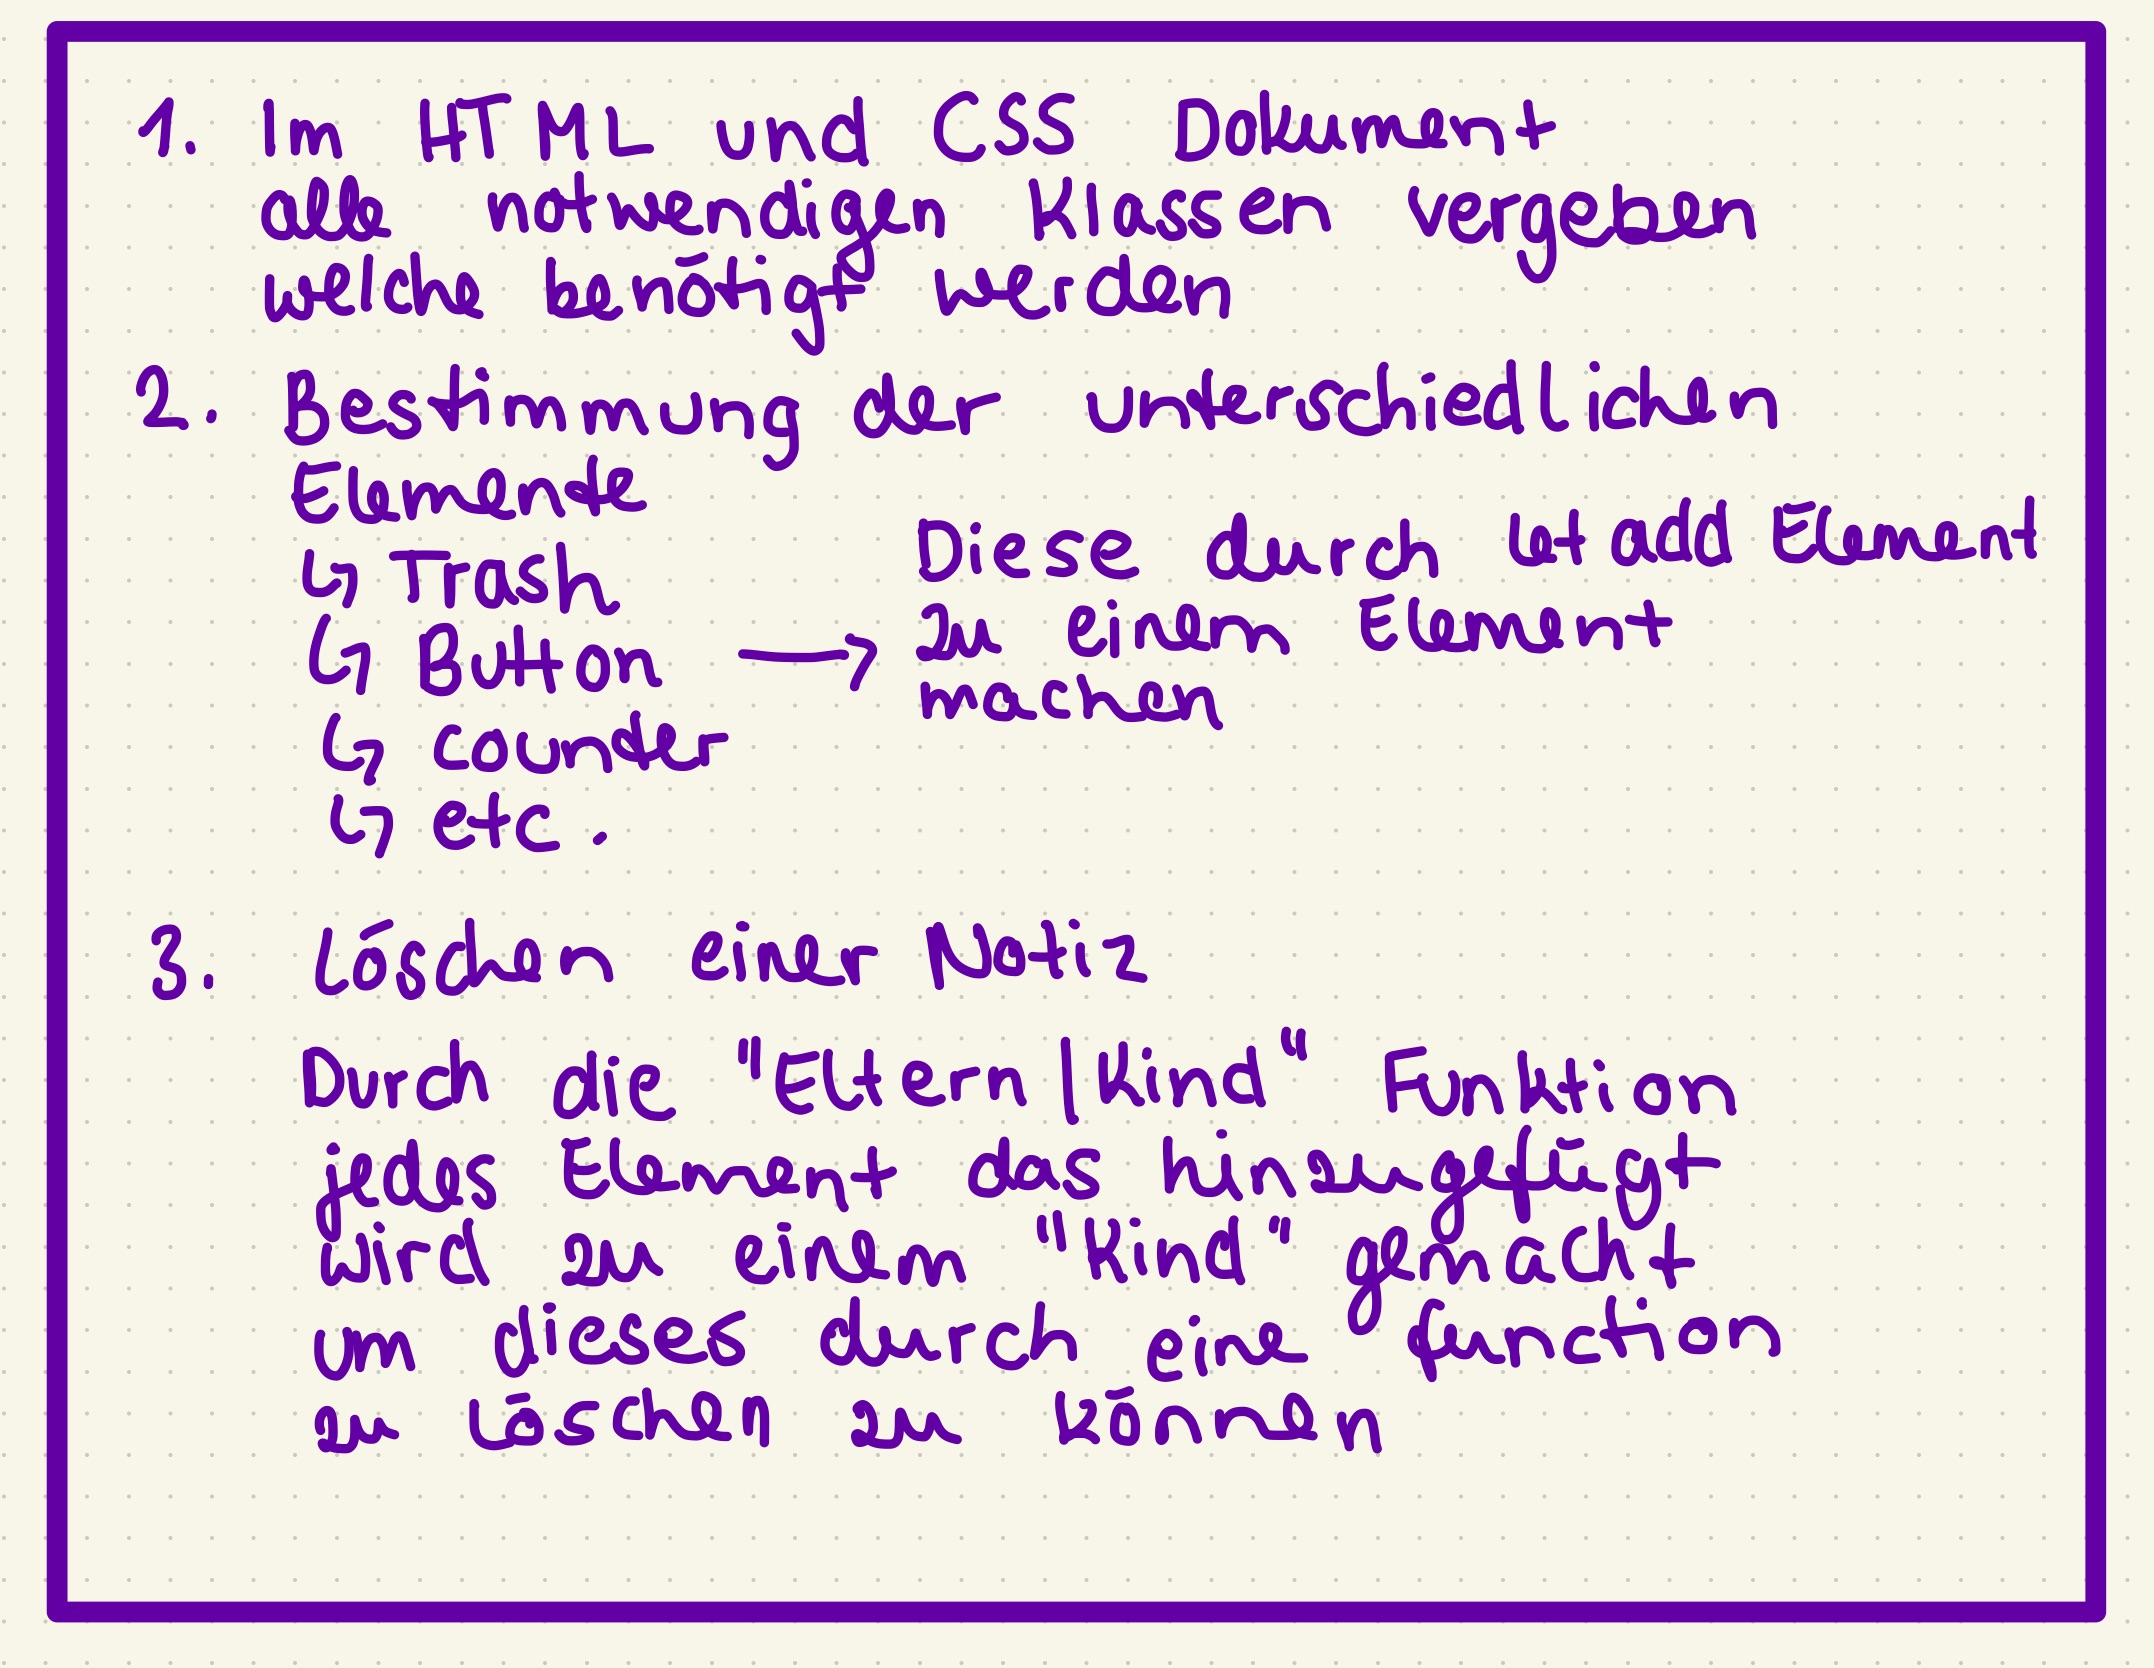 1. Im HTML und CSS Dokument
alle notwendigen Klassen vergeben
welche benötigt werden
2. Bestimmung der unterschiedlichen
Elemente
↳ Trash
↳ Button →
↳ counter
↳ etc.
Diese durch let add Element
zu einem Element
machen
3. Löschen einer Notiz
Durch die "Eltern/Kind" Funktion
jedes Element das hinzugefügt
wird zu einem "Kind" gemacht
um dieses durch eine function
zu löschen zu können